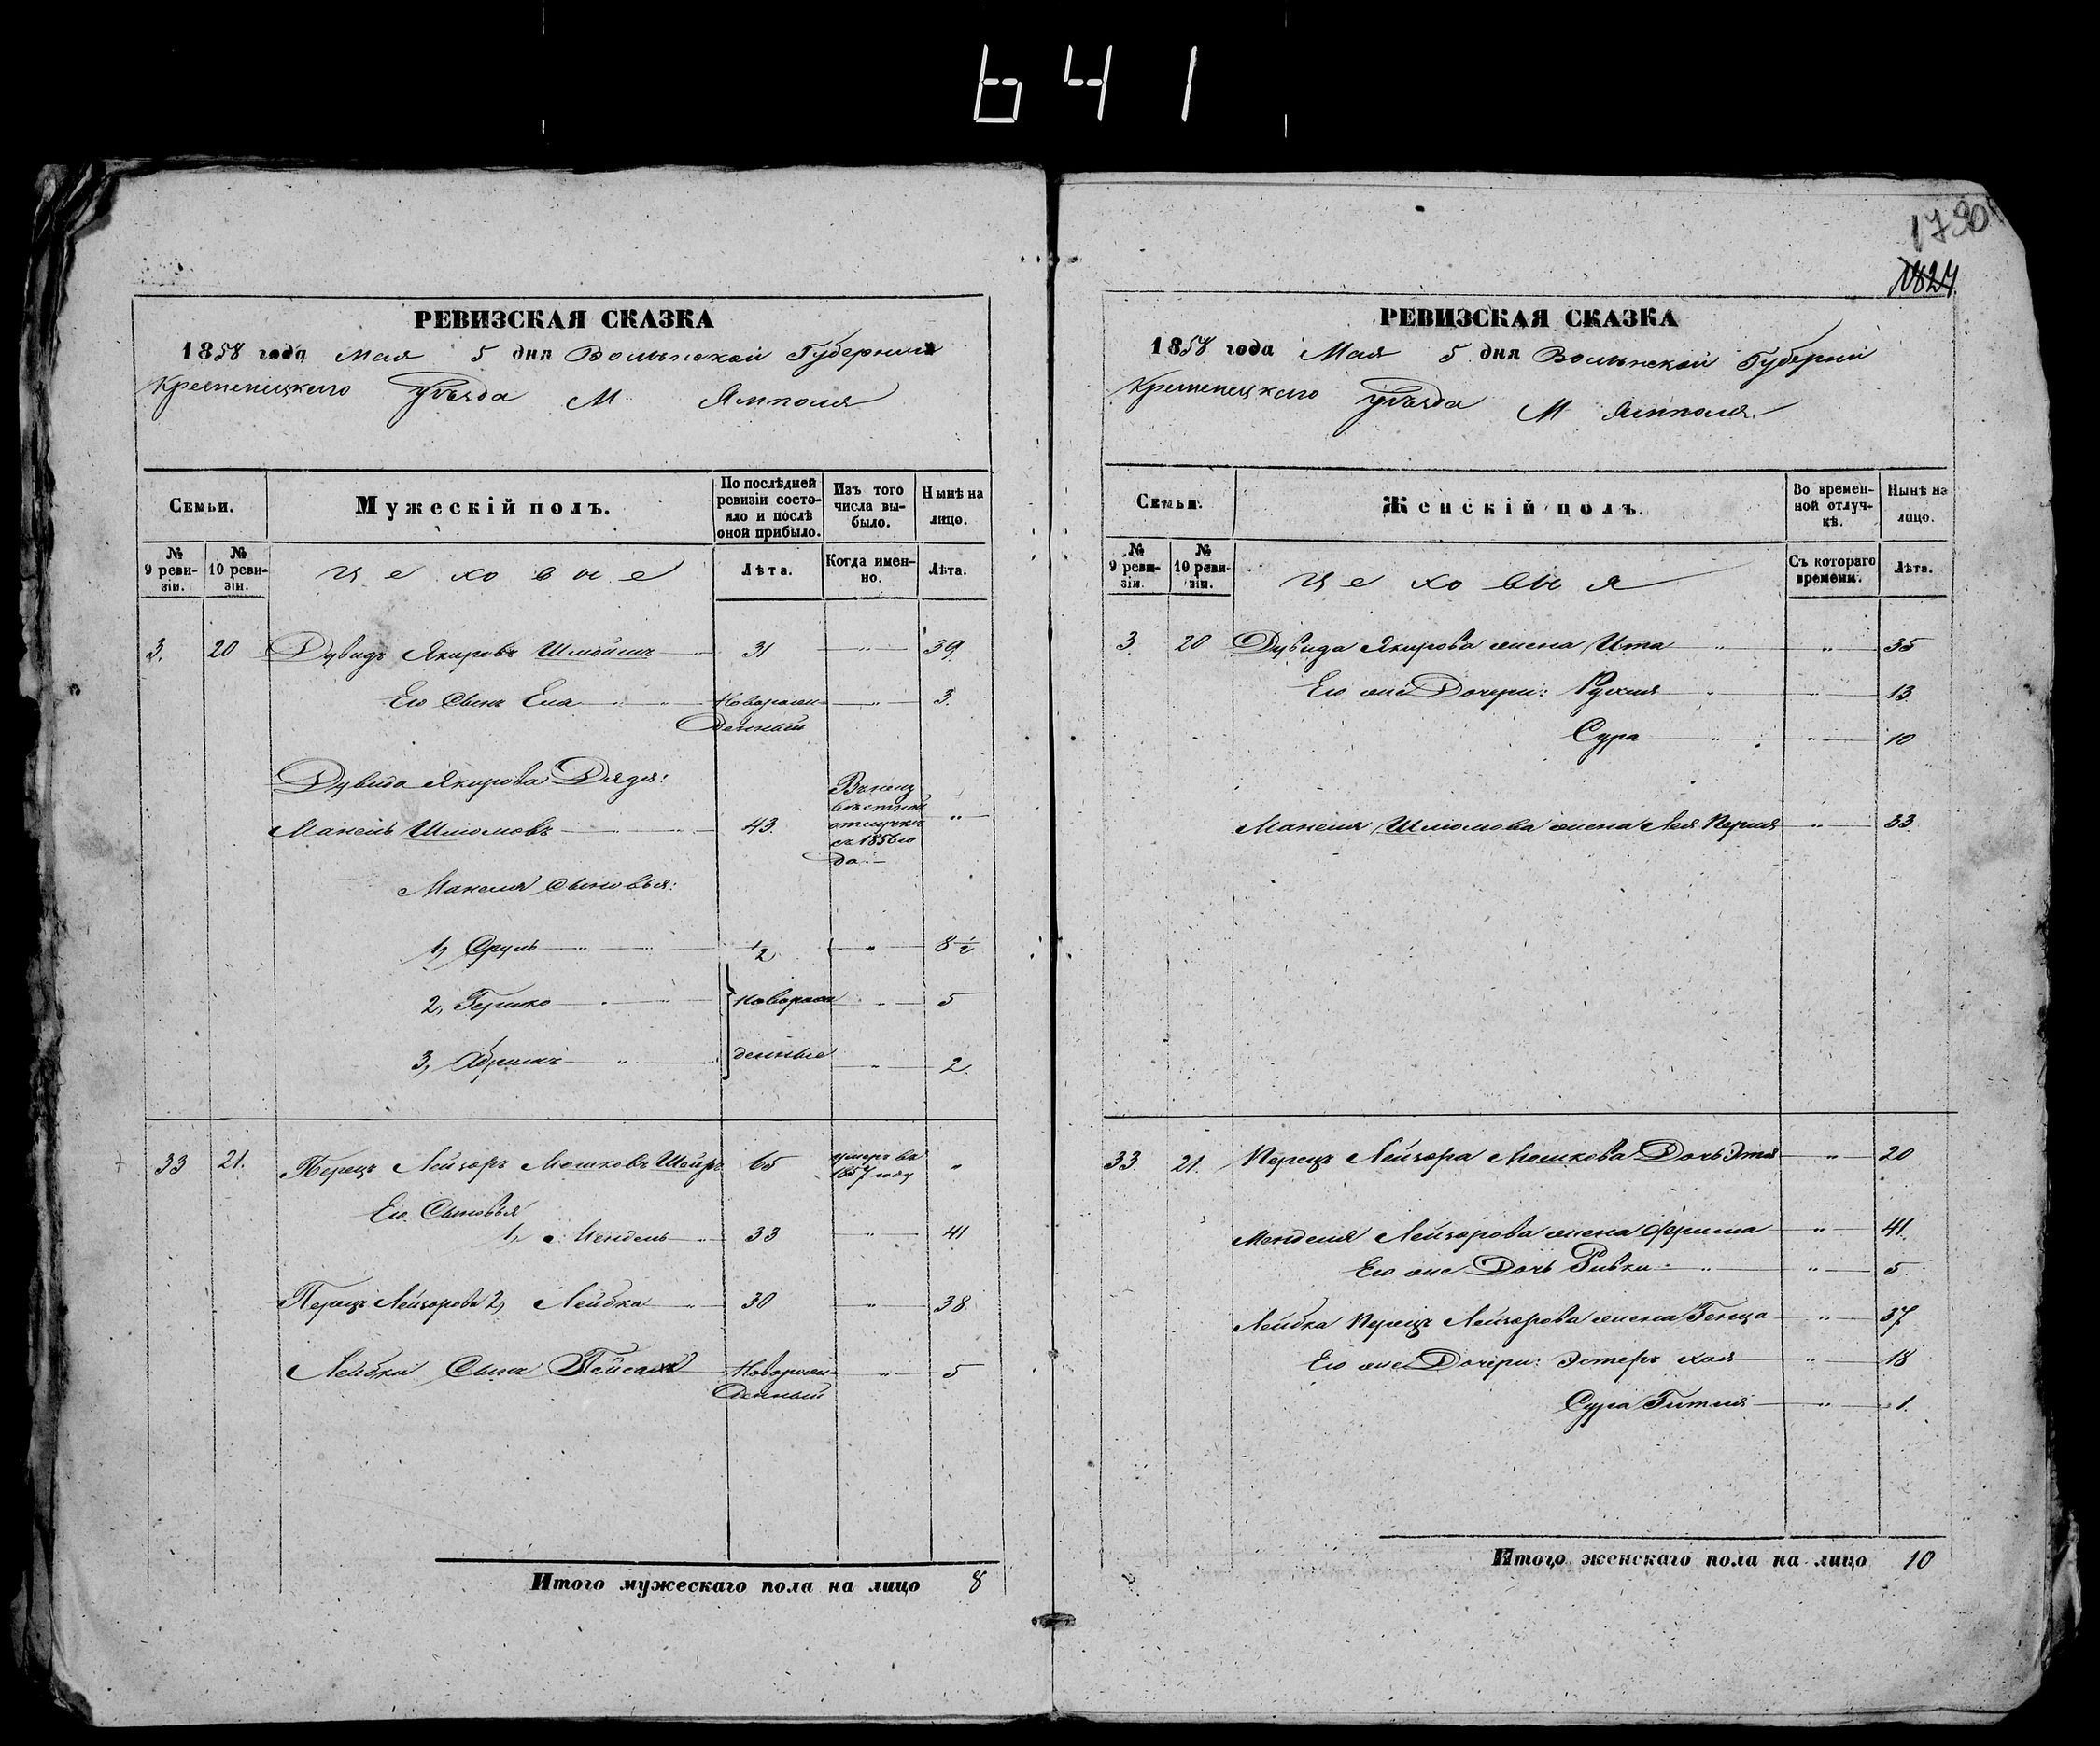 641
1790
1824
РЕВИЗСКАЯ СКАЗКА
1858 года Мая 5 дня Волынской Губернии
Кременецкого уѣзда М Ямполя
Семьи.
Мужескій полъ.
По послѣдней ревизіи состояло и послѣ оной прибыло.
Изъ того числа выбыло.
Нынѣ на лицо.
№ 9 ревизіи.
№ 10 ревизіи.
цеховые
Лѣта.
Когда именно.
Лѣта.
3. 20 Дувидъ Якировъ Шмойшъ 31 " 39
Его Сынъ Еля " " Новорожденный " 3.
Дувида Якирова Дядя:
Манель Шлiомовъ 43. Въ неизвѣстной отлучкѣ съ 1856 года "
Манеля Сыновья:
1, Сруль " 1/2 " 8 1/2
2, Гершко " новорож " 5
3, Абрамъ " денные " 2.
33 21. Перецъ Лейзоръ Мошковъ Шойръ 65 умеръ въ 1857 году "
Его Сыновья
1, Мендель 33 " 41
Перецъ Лейзорова 2, Лейбка 30 " 38
Лейбки Сынъ Пейсахъ Новорожденный " 5
Итого мужескаго пола на лицо 8
РЕВИЗСКАЯ СКАЗКА
1858 года Мая 5 дня Волынской Губернии
Кременецкого уѣзда М Ямполя.
Семьи.
Женскій полъ.
Во временной отлучкѣ.
Нынѣ на лицо.
№ 9 ревизіи.
№ 10 ревизіи.
цеховыя
Съ котораго времени.
Лѣта.
3. 20 Дувида Якирова жена Ита " " 35
Его же Дочери: Рухля " " 13
Сура " " 10
Манеля Шлiомова жена Лея Перля " 33
33. 21. Перецъ Лейзора Мошкова Дочь Этя " 20
Менделя Лейзорова жена Фрима " 41.
Его же Дочь Ривки " " 5
Лейбка Перецъ Лейзорова жена Генца " 37
Его же Дочери: Эстеръ Хая " 18
Сура Гитля " 1.
Итого женскаго пола на лицо 10